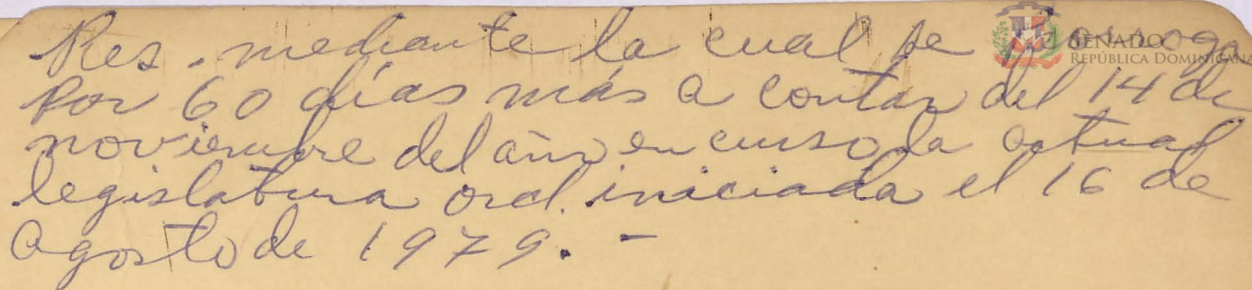 Res. mediante la cual se prorroga
por 60 días más a contar del 14 de
noviembre del año en curso la actual
legislatura ord. iniciada el 16 de
agosto de 1979. -
SENADO
REPÚBLICA DOMINICANA